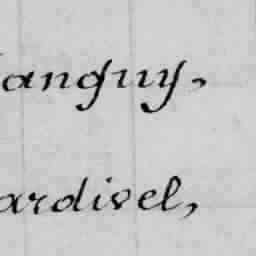 anguy,
ardivel,